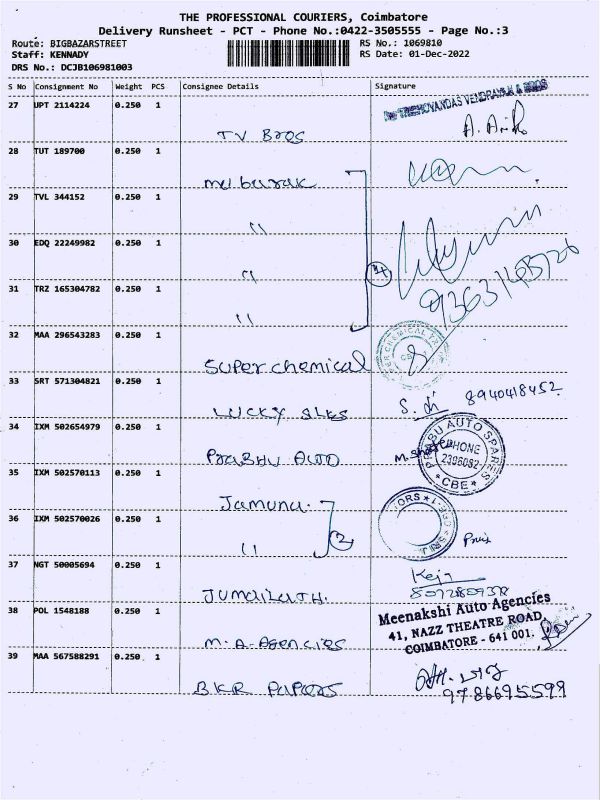 THE PROFESSIONAL COURIERS, Coimbatore
Delivery Runsheet - PCT - Phone No.:0422-3505555 - Page No.:3
Route: BIGBAZARSTREET RS No.: 1069810
Staff: KENNADY RS Date: 01-Dec-2022
DRS No.: DCJB106981003
S No Consignment No Weight PCS Consignee Details Signature
27 UPT 2114224 0.250 1
TV Bros A.
28 TUT 189700 0.250 1
mubarak
29 TVL 344152 0.250 1
"
30 EDQ 22249982 0.250 1
" 4
31 TRZ 165304782 0.250 1
"
32 MAA 296543283 0.250 1
Super chemical
33 SRT 571304821 0.250 1
LUCKY SLKS 8940418452
34 IXM 502654979 0.250 1
PRABHU AUTO PRABU AUTO SPARES PHONE 2396082 CBE
35 IXM 502570113 0.250 1
Jamuna.
36 IXM 502570026 0.250 1
" 2
37 NGT 50005694 0.250 1
JUMAILATH.
38 POL 1548188 0.250 1
M.A. Agencies
Meenakshi Auto Agencies
41, NAZZ THEATRE ROAD,
COIMBATORE - 641 001.
39 MAA 567588291 0.250 1
BKR PAPERS 9786695599